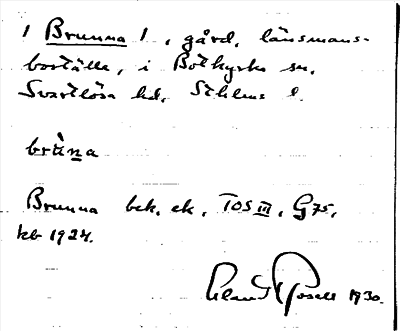 1 Brunna 1, gård, länsmans-
boställe, i Botkyrka sn,
Svartlösa hd, Sthlms l.
bràna
Brunna bek. ek. TOS III, G75,
kb 1924.
1930.